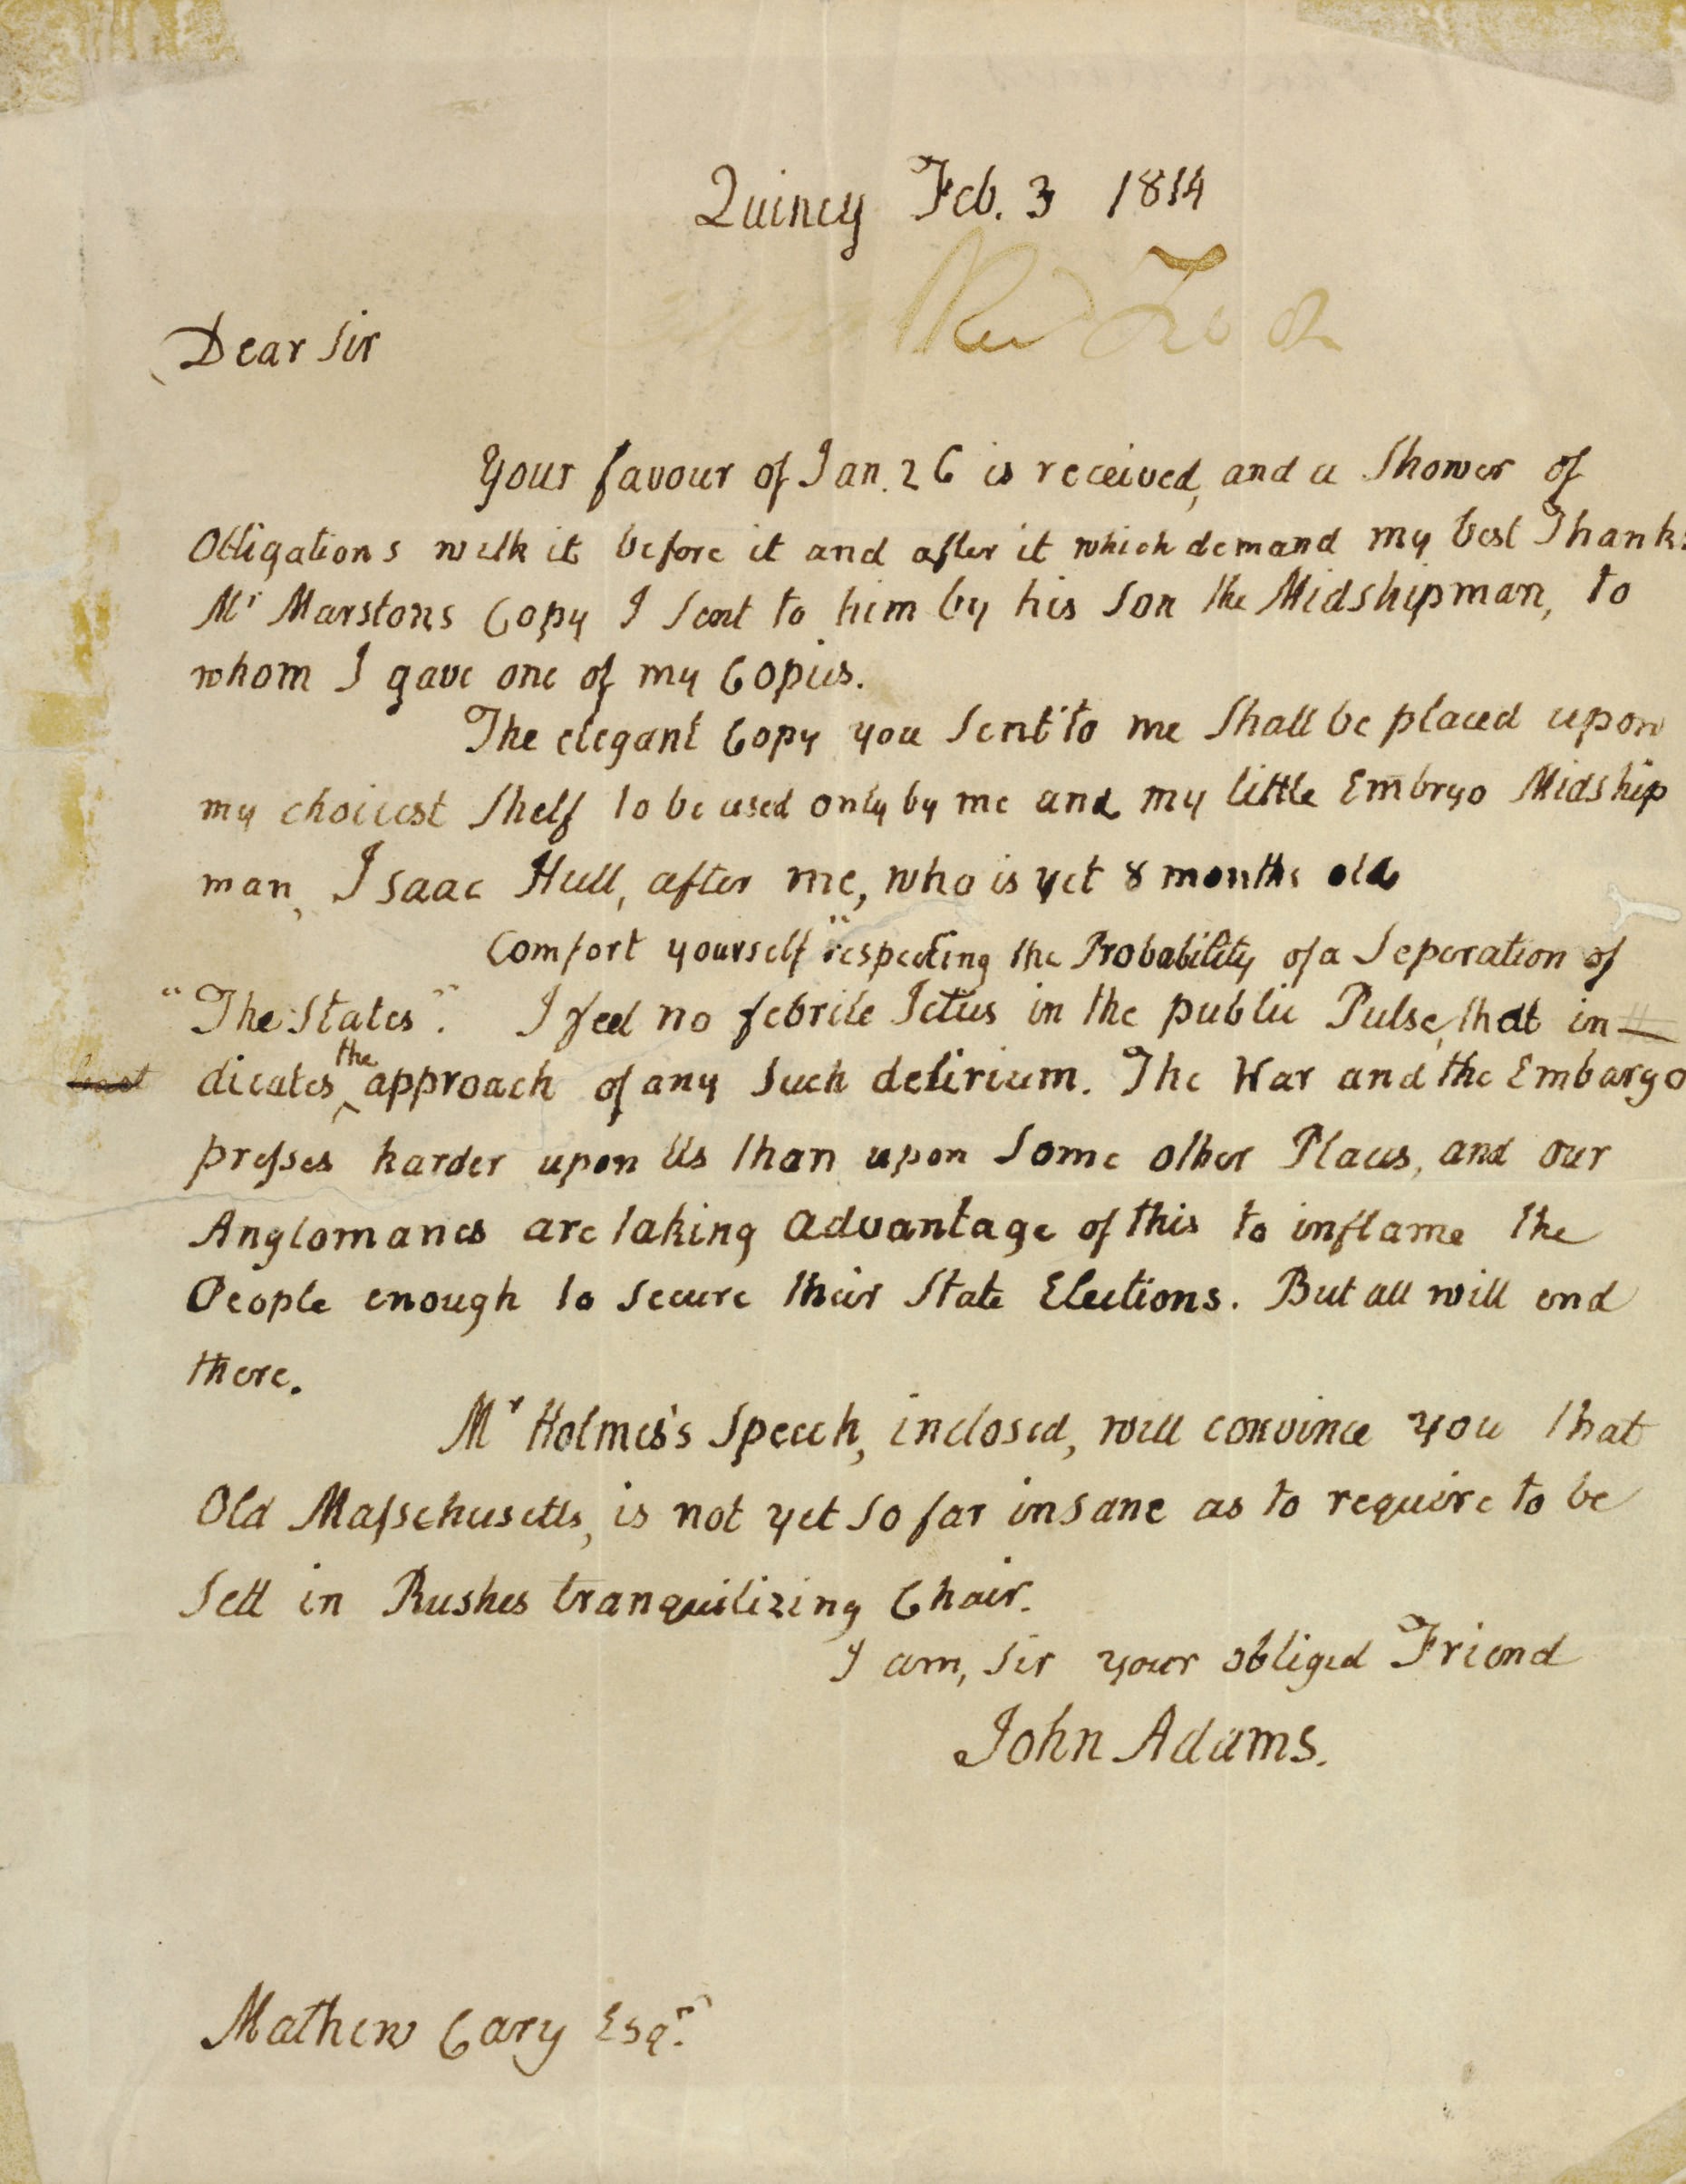 Quincy Feb. 3 1814
Rec'd Feb 8
Dear Sir
Your favour of Jan. 26 is received, and a Shower of
Obligations with it before it and after it which demand my best Thanks
Mr Marstons Copy I Sent to him by his Son the Midshipman, to
whom I gave one of my Copies.
The elegant Copy you Sent to me Shall be placed upon
my choicest Shelf to be used only by me and my little Embryo Midship
man, Isaac Hull, after me, who is yet 8 months old
Comfort yourself "respecting the Probability of a Seperation of
"The States". I feel no febrile Ictus in the public Pulse, that in
dicates the approach of any Such delirium. The War and the Embargo
presses harder upon Us than upon Some other Places, and our
Anglomanes are taking advantage of this to inflame the
People enough to Secure their State Elections. But all will end
there.
Mr Holmes's Speech, inclosed, will convince you that
Old Masschusetts, is not yet So far insane as to require to be
Sett in Rushes tranquilizing Chair.
I am, Sir your obliged Friend
John Adams.
Mathew Cary Esqr.